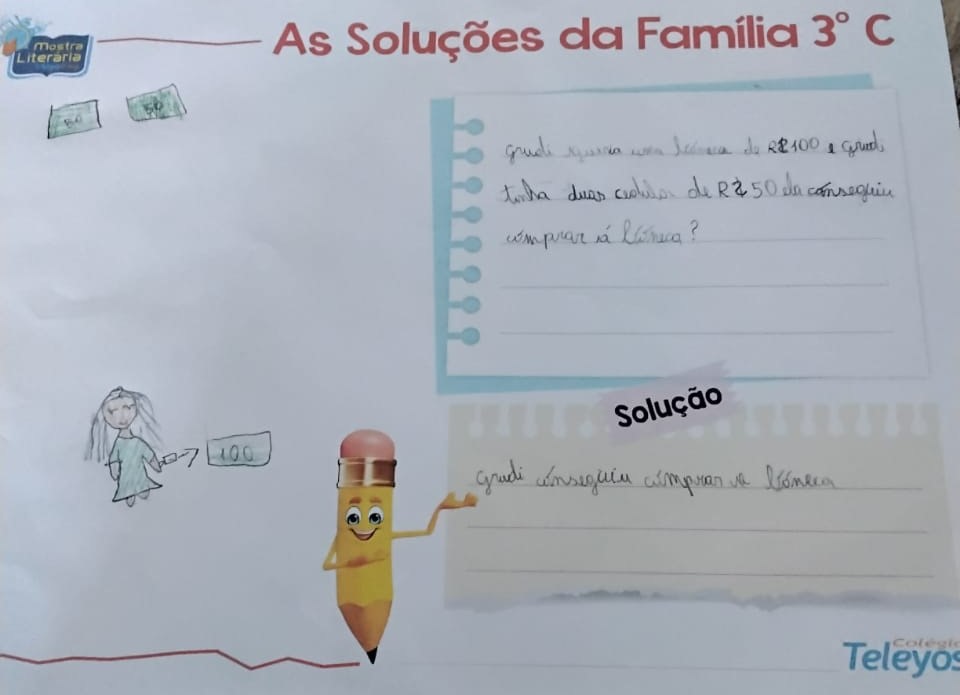 Mostra
Literária
As Soluções da Família 3° C
50
50
grudi queria uma bóneca de R$100 e grudi
tinha duas cedulas de R$50 ela conseguiu
comprar a bóneca?
Solução
100
grudi conseguiu comprar a bóneca
Colégio
Teleyos